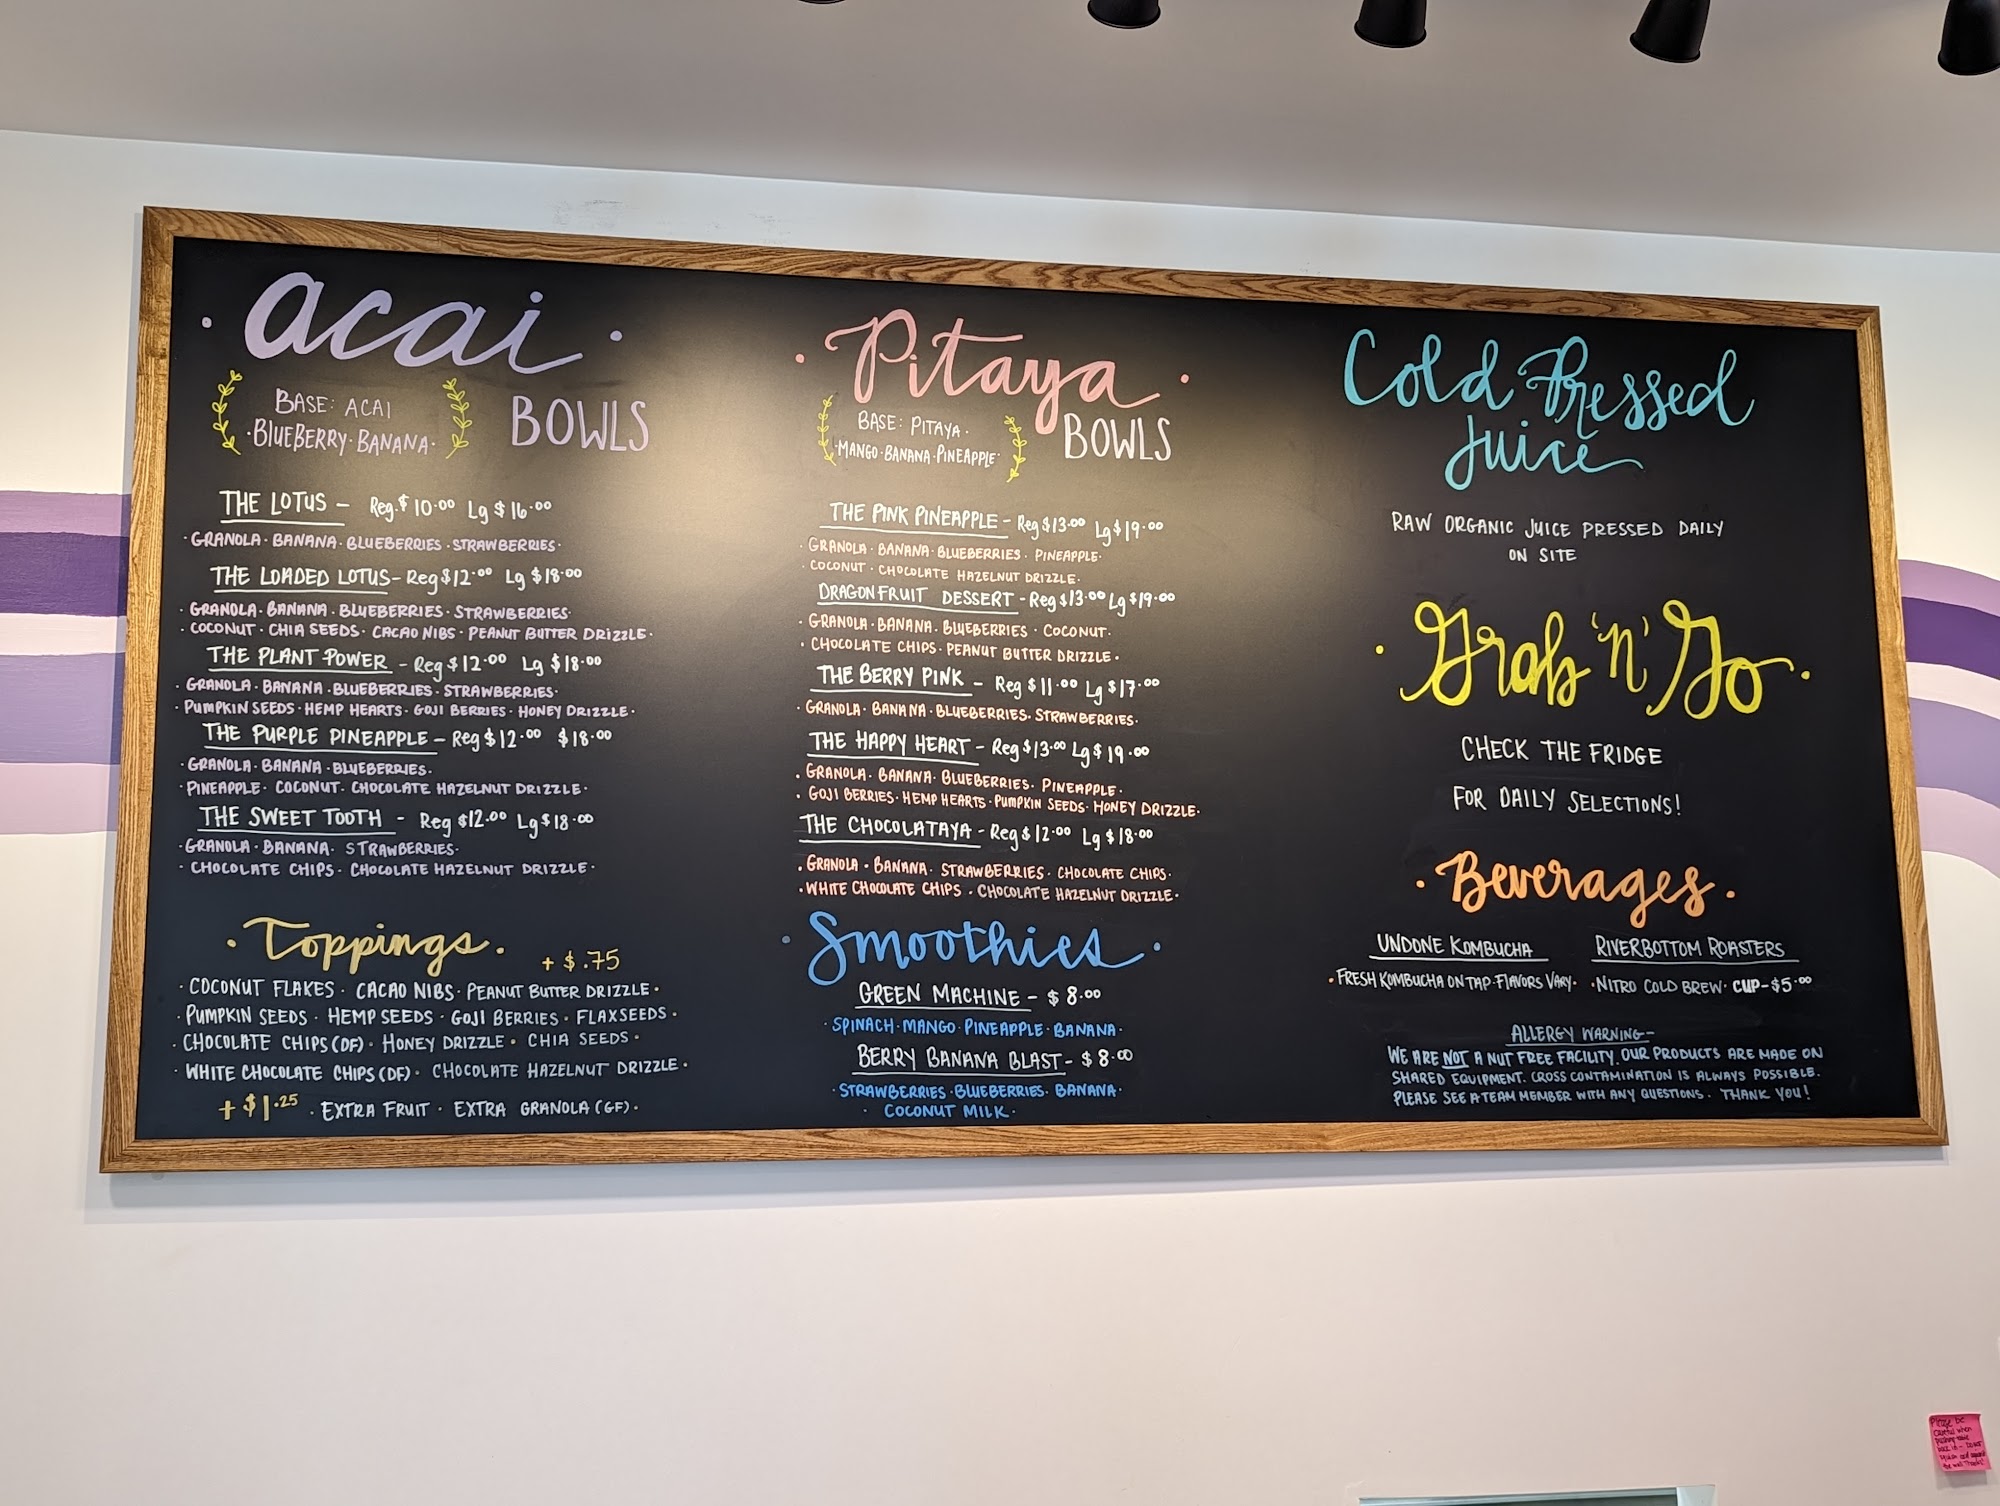 acai
BASE: ACAI
·BLUEBERRY·BANANA·
BOWLS
THE LOTUS - Reg.$10.00 Lg $16.00
·GRANOLA·BANANA·BLUEBERRIES·STRAWBERRIES·
THE LOADED LOTUS- Reg $12.00 Lg $18.00
·GRANOLA·BANANA·BLUEBERRIES·STRAWBERRIES·
·COCONUT·CHIA SEEDS·CACAO NIBS·PEANUT BUTTER DRIZZLE·
THE PLANT POWER - Reg $12.00 Lg $18.00
·GRANOLA·BANANA·BLUEBERRIES·STRAWBERRIES·
·PUMPKIN SEEDS·HEMP HEARTS·GOJI BERRIES·HONEY DRIZZLE·
THE PURPLE PINEAPPLE - Reg $12.00 $18.00
·GRANOLA·BANANA·BLUEBERRIES·
·PINEAPPLE·COCONUT·CHOCOLATE HAZELNUT DRIZZLE·
THE SWEET TOOTH - Reg $12.00 Lg $18.00
·GRANOLA·BANANA·STRAWBERRIES·
·CHOCOLATE CHIPS·CHOCOLATE HAZELNUT DRIZZLE·
·Toppings· + $.75
·COCONUT FLAKES·CACAO NIBS·PEANUT BUTTER DRIZZLE·
·PUMPKIN SEEDS·HEMP SEEDS·GOJI BERRIES·FLAXSEEDS·
·CHOCOLATE CHIPS (DF)·HONEY DRIZZLE·CHIA SEEDS·
·WHITE CHOCOLATE CHIPS (DF)·CHOCOLATE HAZELNUT DRIZZLE·
+ $1.25 ·EXTRA FRUIT·EXTRA GRANOLA (GF)·
·Pitaya·
BASE: PITAYA·
·MANGO·BANANA·PINEAPPLE·
BOWLS
THE PINK PINEAPPLE - Reg $13.00 Lg $19.00
·GRANOLA·BANANA·BLUEBERRIES·PINEAPPLE·
·COCONUT·CHOCOLATE HAZELNUT DRIZZLE·
DRAGONFRUIT DESSERT - Reg $13.00 Lg $19.00
·GRANOLA·BANANA·BLUEBERRIES·COCONUT·
·CHOCOLATE CHIPS·PEANUT BUTTER DRIZZLE·
THE BERRY PINK - Reg $11.00 Lg $17.00
·GRANOLA·BANANA·BLUEBERRIES·STRAWBERRIES·
THE HAPPY HEART - Reg $13.00 Lg $19.00
·GRANOLA·BANANA·BLUEBERRIES·PINEAPPLE·
·GOJI BERRIES·HEMP HEARTS·PUMPKIN SEEDS·HONEY DRIZZLE·
THE CHOCOLATAYA - Reg $12.00 Lg $18.00
·GRANOLA·BANANA·STRAWBERRIES·CHOCOLATE CHIPS·
·WHITE CHOCOLATE CHIPS·CHOCOLATE HAZELNUT DRIZZLE·
·Smoothies·
GREEN MACHINE - $8.00
·SPINACH·MANGO·PINEAPPLE·BANANA·
BERRY BANANA BLAST - $8.00
·STRAWBERRIES·BLUEBERRIES·BANANA·
·COCONUT MILK·
Cold Pressed
Juice
RAW ORGANIC JUICE PRESSED DAILY
ON SITE
·Grab 'n' Go·
CHECK THE FRIDGE
FOR DAILY SELECTIONS!
·Beverages·
UNDONE KOMBUCHA
·FRESH KOMBUCHA ON TAP·FLAVORS VARY·
RIVERBOTTOM ROASTERS
·NITRO COLD BREW· CUP-$5.00
ALLERGY WARNING-
WE ARE NOT A NUT FREE FACILITY. OUR PRODUCTS ARE MADE ON
SHARED EQUIPMENT. CROSS CONTAMINATION IS ALWAYS POSSIBLE.
PLEASE SEE A TEAM MEMBER WITH ANY QUESTIONS. THANK YOU!
Please be
careful when